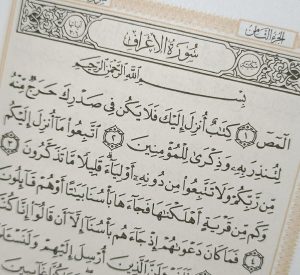 الجزء الثامن
سورة الأعراف
بسم الله الرحمن الرحيم
المص ١ كتاب أنزل إليك فلا يكن في صدرك حرج منه
لتنذر به وذكرى للمؤمنين ٢ اتبعوا ما أنزل إليكم
من ربكم ولا تتبعوا من دونه أولياء قليلا ما تذكرون ٣
وكم من قرية أهلكناها فجاءها بأسنا بياتا أو هم قائلون
٤ فما كان دعواهم إذ جاءهم بأسنا إلا أن قالوا إنا كنا
فلنسئلن الذين أرسل إليهم ولنسئلن